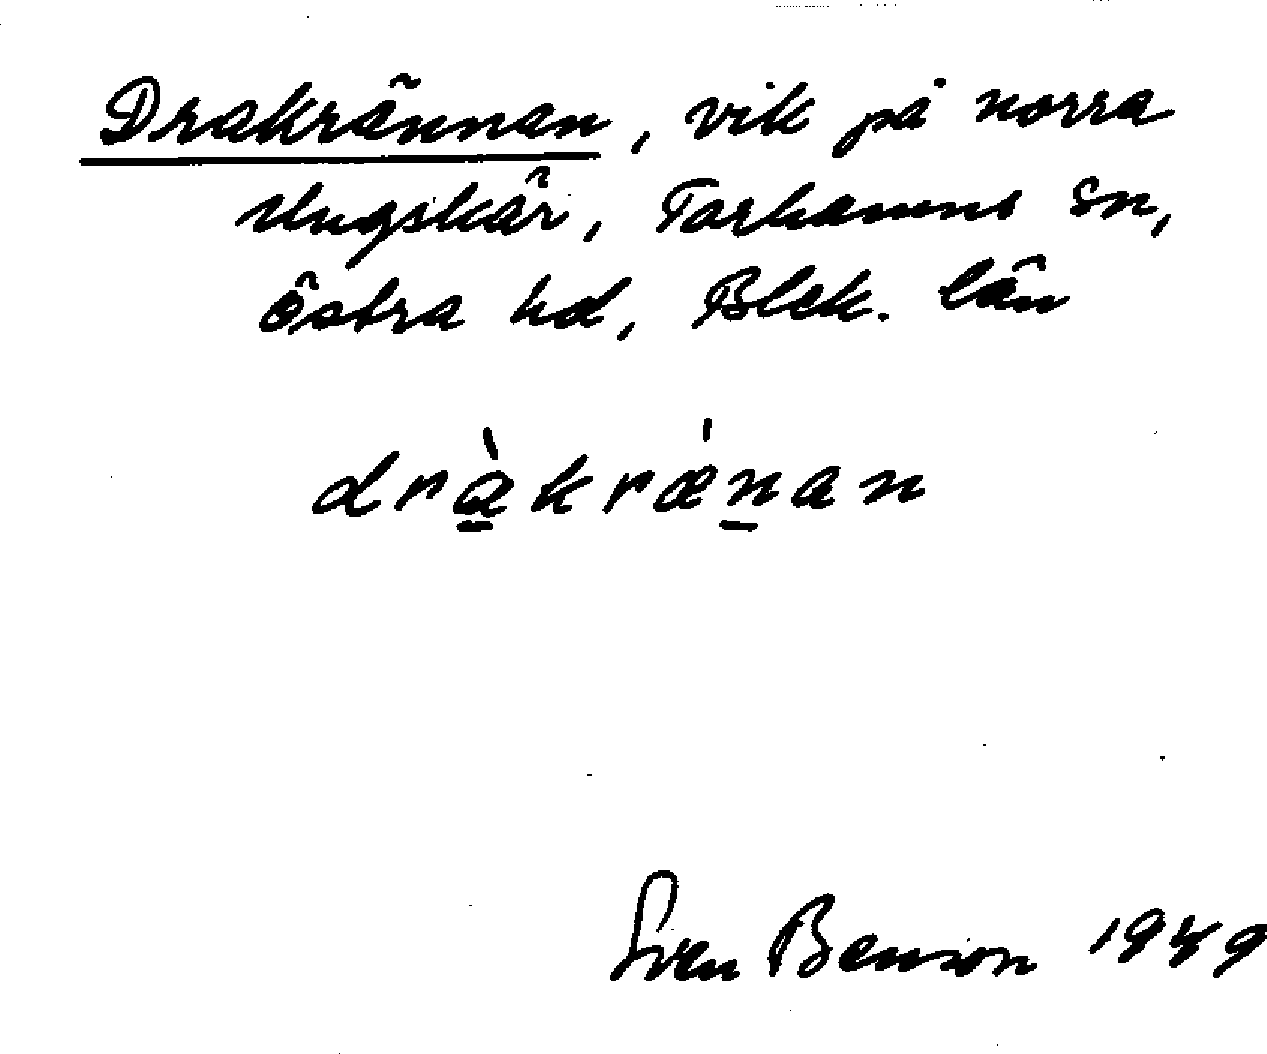 Drakrännan, vik på norra
Ungskär, Torhamns sn,
Östra hd, Blek. län
dràkræ̀nan
Sven Benson 1949